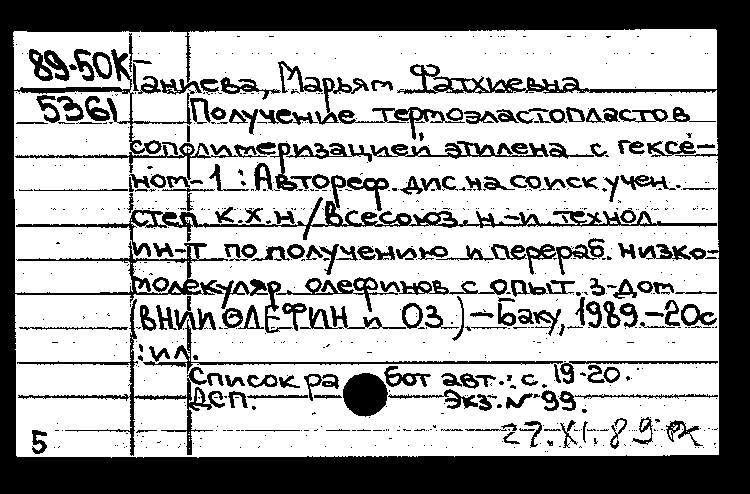 89-50К
5361
Ганиева, Марьям Фатхиевна
Получение термоэластопластов
сополимеризацией этилена с гексе-
ном-1 : Автореф. дис. на соиск. учен.
степ. к.х.н. / Всесоюз. н.-и технол.
ин-т по получению и перераб. низко-
молекуляр. олефинов с опыт. з-дом
(ВНИИОЛЕФИН и ОЗ). – Баку, 1989. – 20с
: ил.
Список работ авт.: с. 19-20.
ДСП. Экз. № 99.
5
27.XI.89